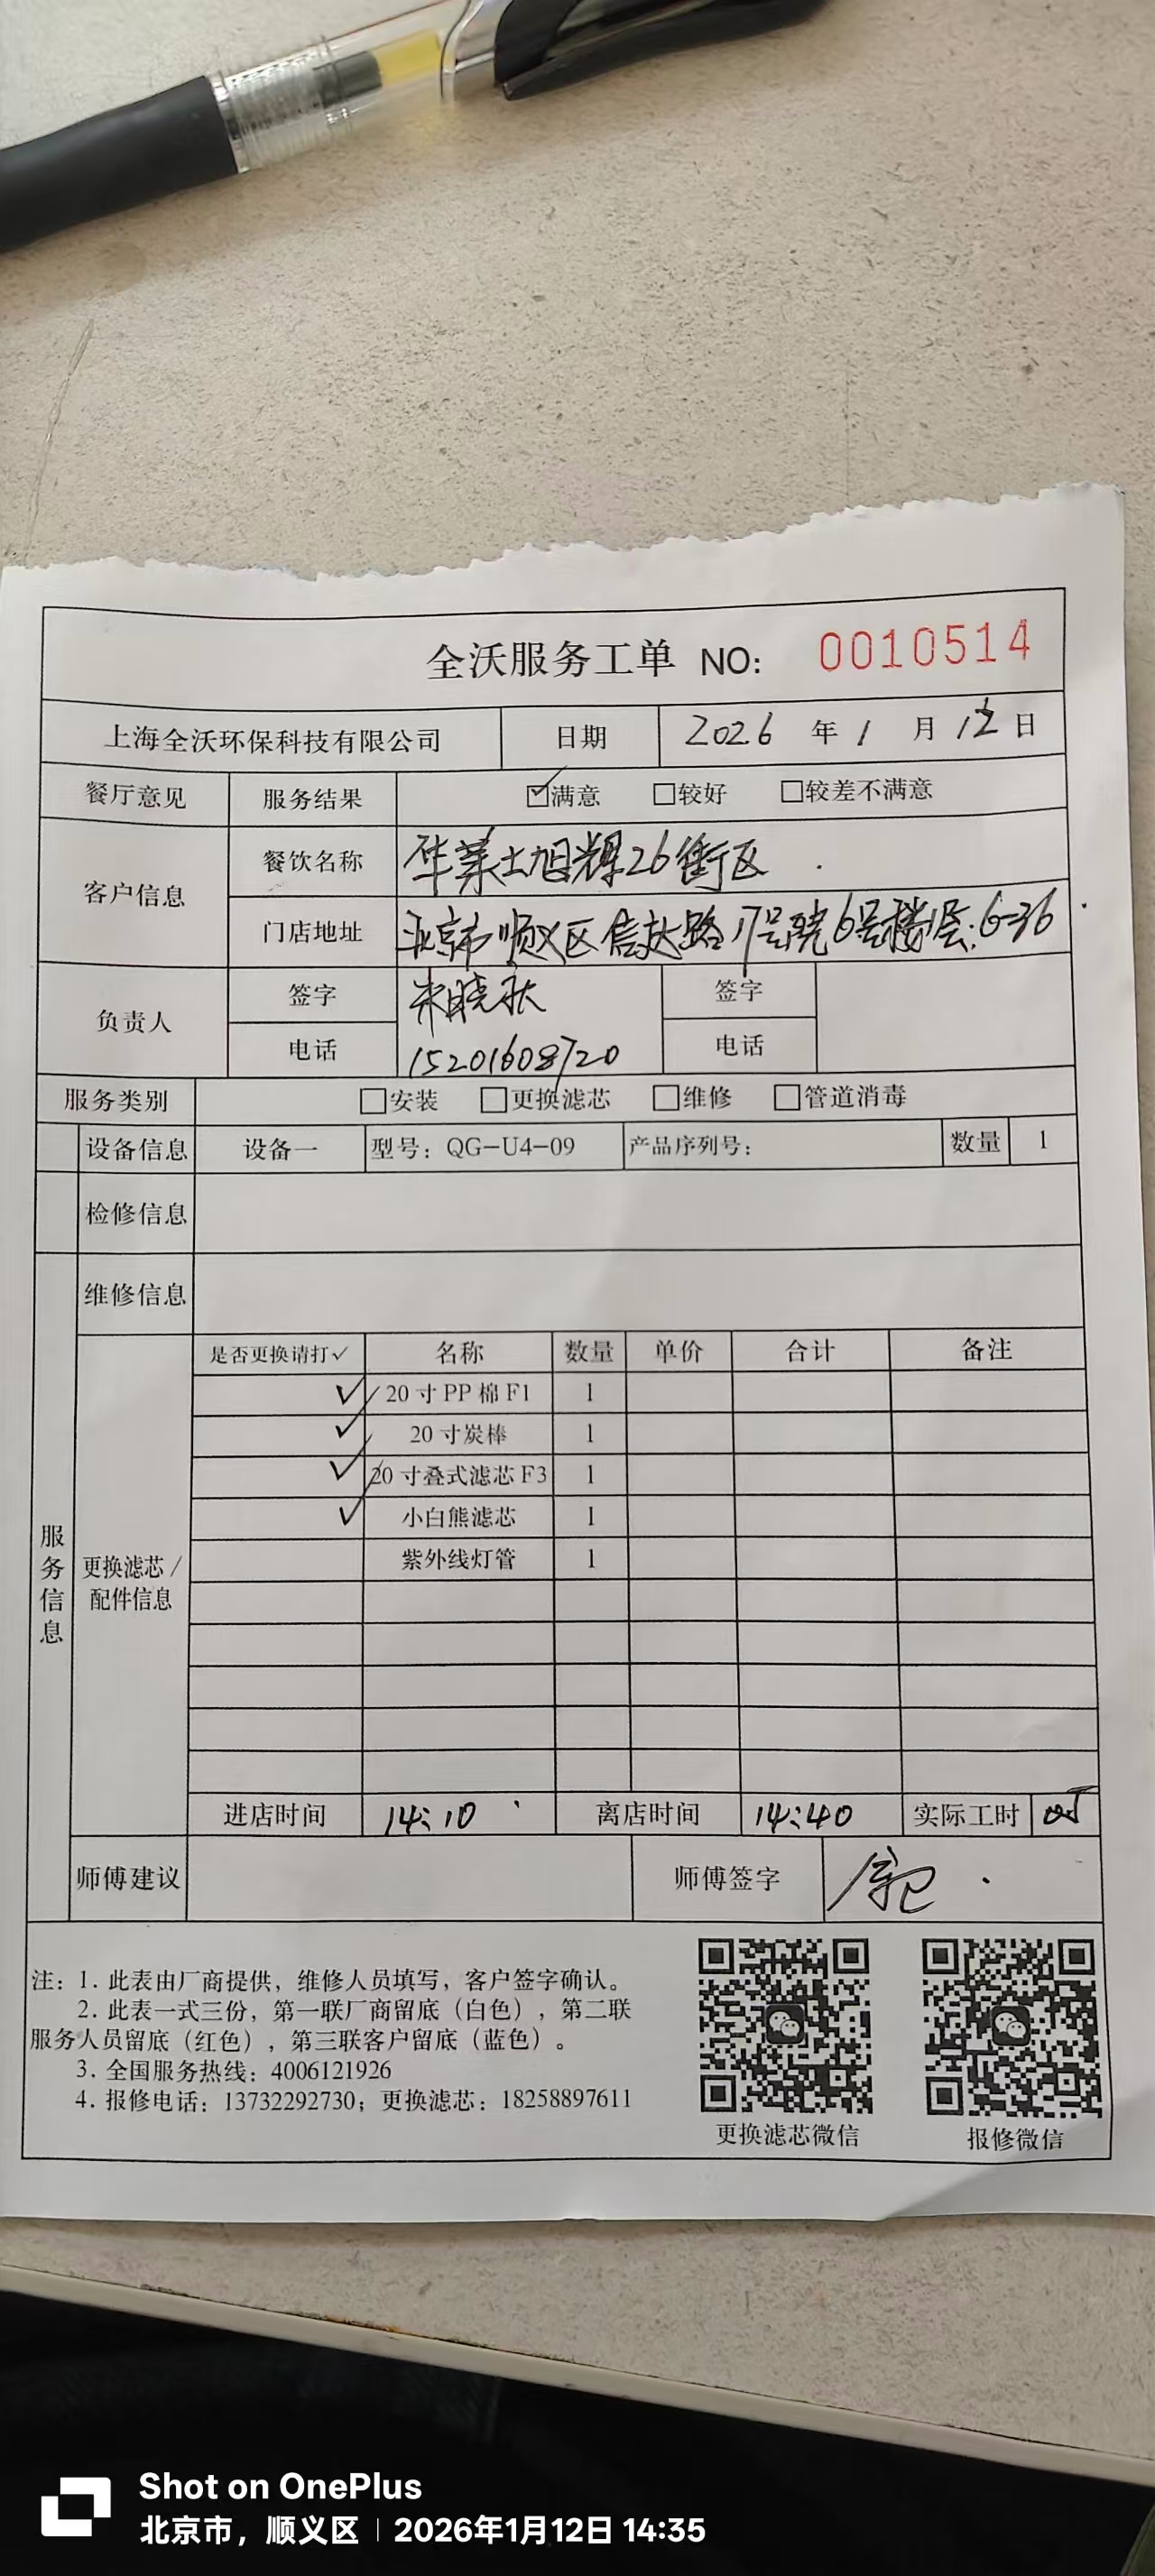 全沃服务工单 NO: 0010514
上海全沃环保科技有限公司 日期 2026 年 1 月 12 日
餐厅意见 服务结果 ☑满意 □较好 □较差不满意
客户信息 餐饮名称 华莱士旭辉26街区
门店地址 北京市顺义区信达路 号院6号楼1层.6-36
负责人 签字 朱晓秋 签字
电话 15201608720 电话
服务类别 □安装 □更换滤芯 □维修 □管道消毒
设备信息 设备一 型号: QG-U4-09 产品序列号: 数量 1
检修信息
维修信息
是否更换请打✓ 名称 数量 单价 合计 备注
✓ 20寸PP棉F1 1
✓ 20寸炭棒 1
✓ 20寸叠式滤芯F3 1
✓ 小白熊滤芯 1
紫外线灯管 1
服务信息
更换滤芯/
配件信息
进店时间 14:10 离店时间 14:40 实际工时
师傅建议 师傅签字
注: 1. 此表由厂商提供, 维修人员填写, 客户签字确认。
2. 此表一式三份, 第一联厂商留底(白色), 第二联
服务人员留底(红色), 第三联客户留底(蓝色)。
3. 全国服务热线: 4006121926
4. 报修电话: 13732292730; 更换滤芯: 18258897611
更换滤芯微信 报修微信
Shot on OnePlus
北京市, 顺义区 | 2026年1月12日 14:35